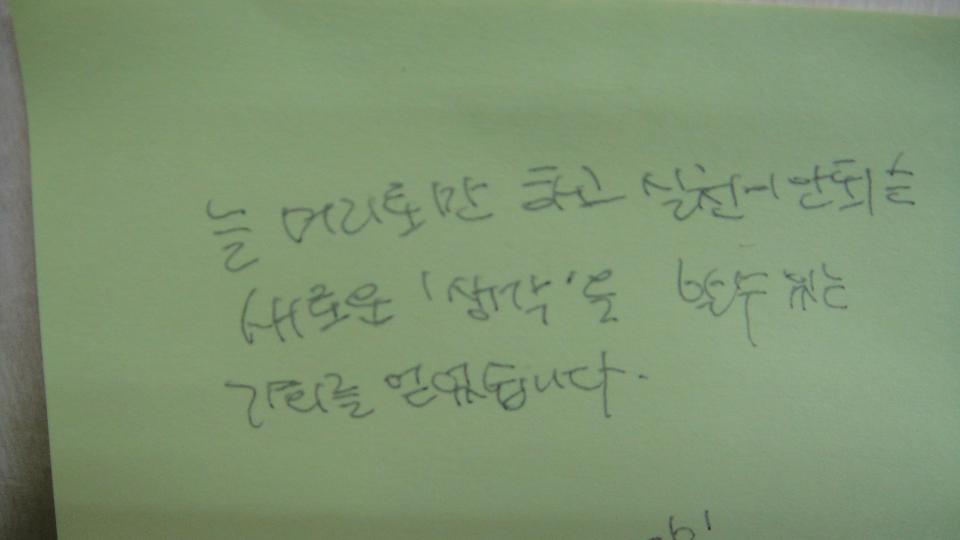 늘 머리로만 하고 실천이 안되는
새로운 '생각'을 볼 수 있는
기회를 얻었습니다.